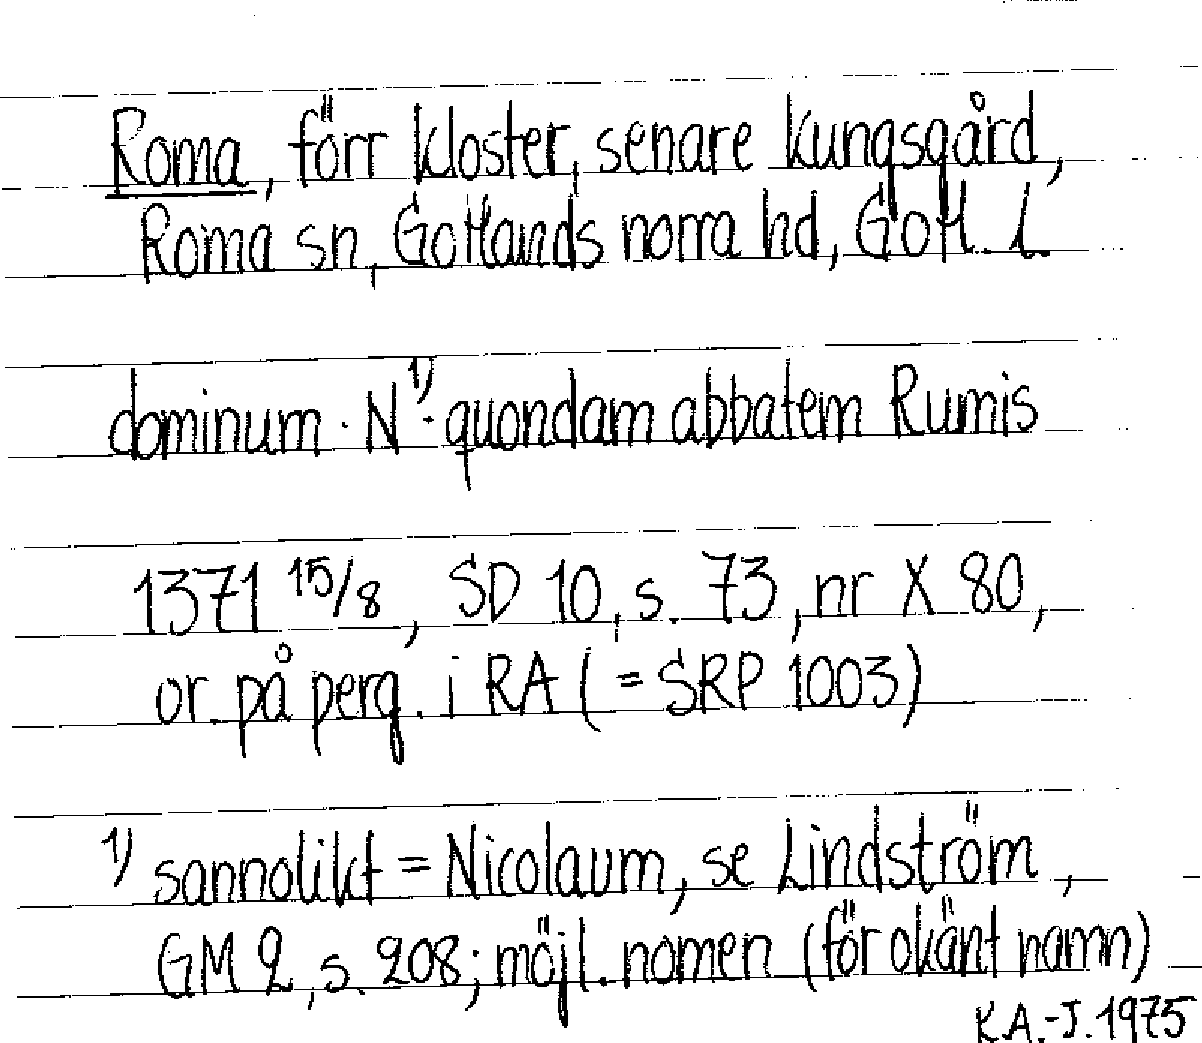 Roma, förr kloster, senare kungsgård,
Roma sn, Gotlands norra hd, Gotl. l
dominum · N¹⁾· quondam abbatem Rumis
1371 15/8, SD 10, s. 73, nr X 80,
or på perg. i RA (= SRP 1003)
1) sannolikt = Nicolaum, se Lindström,
GM 2, s. 208; möjl. nomen (för okänt namn)
K.A.-J. 1975